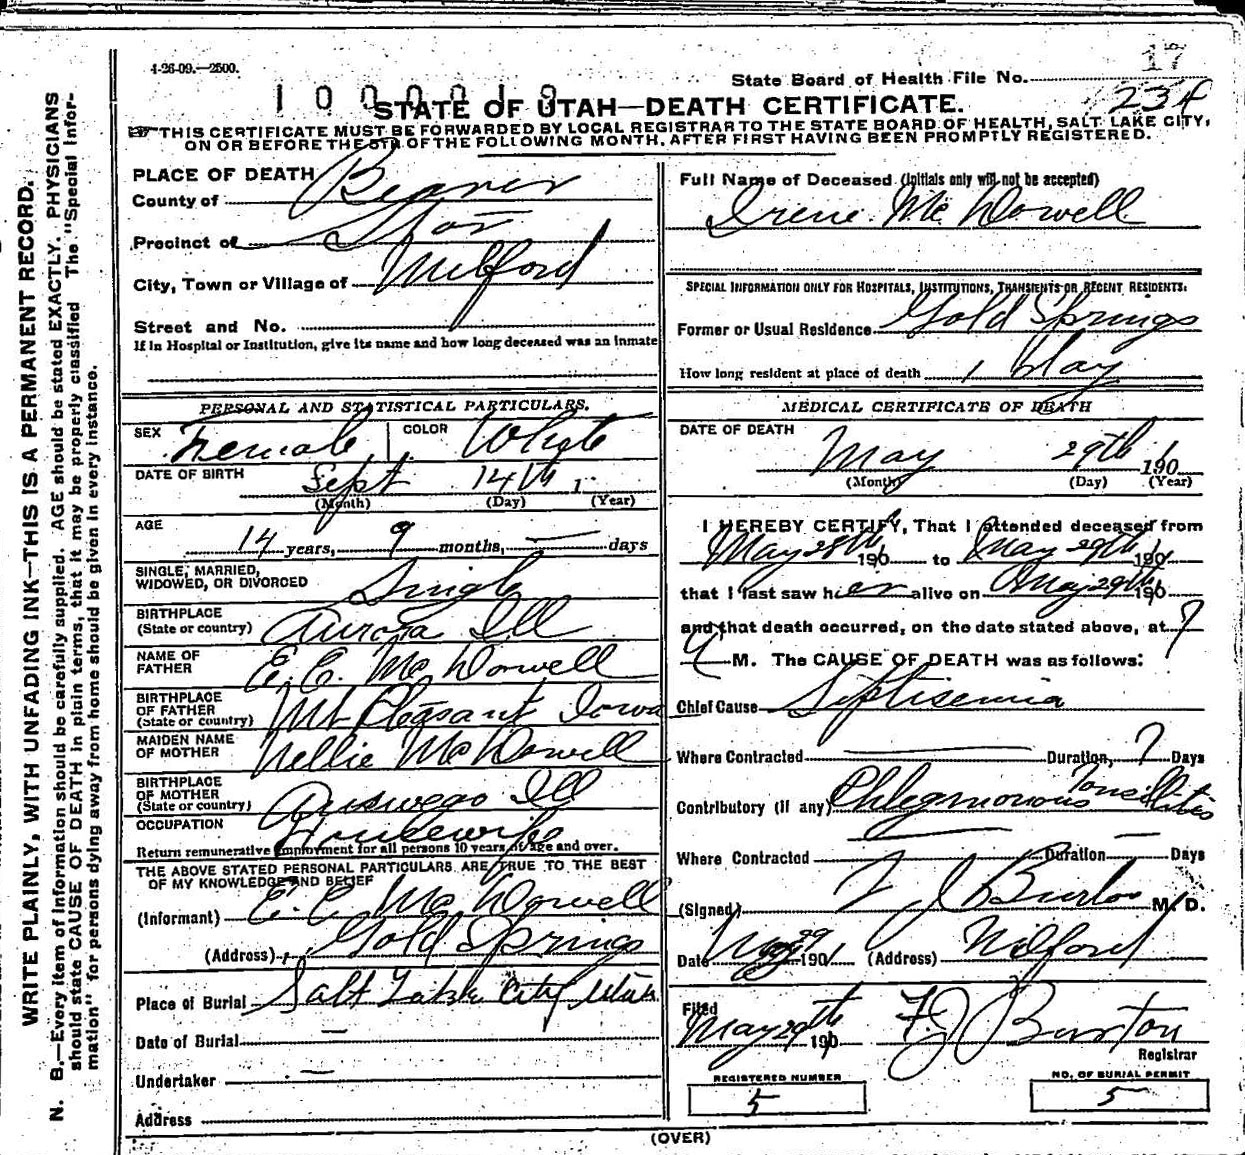 17
4-26-09.—2500.
State Board of Health File No.
1000019
234
STATE OF UTAH—DEATH CERTIFICATE.
THIS CERTIFICATE MUST BE FORWARDED BY LOCAL REGISTRAR TO THE STATE BOARD OF HEALTH, SALT LAKE CITY,
ON OR BEFORE THE 5TH OF THE FOLLOWING MONTH, AFTER FIRST HAVING BEEN PROMPTLY REGISTERED.
WRITE PLAINLY, WITH UNFADING INK—THIS IS A PERMANENT RECORD.
N. B.—Every item of information should be carefully supplied. AGE should be stated EXACTLY. PHYSICIANS
should state CAUSE OF DEATH in plain terms, that it may be properly classified The "Special Infor-
mation" for persons dying away from home should be given in every instance.
PLACE OF DEATH
County of Beaver
Precinct of Star
City, Town or Village of Milford
Street and No.
If in Hospital or Institution, give its name and how long deceased was an inmate
PERSONAL AND STATISTICAL PARTICULARS.
SEX Female COLOR White
DATE OF BIRTH Sept 14th 1
(Month) (Day) (Year)
AGE
14 years, 9 months, — days
SINGLE, MARRIED,
WIDOWED, OR DIVORCED Single
BIRTHPLACE
(State or country) Aurora Ill
NAME OF
FATHER E. C. Mc Dowell
BIRTHPLACE
OF FATHER
(State or country) Mt Pleasant Iowa
MAIDEN NAME
OF MOTHER Nellie McDowell
BIRTHPLACE
OF MOTHER
(State or country) Ill
OCCUPATION Housewife
Return remunerative Employment for all persons 10 years of age and over.
THE ABOVE STATED PERSONAL PARTICULARS ARE TRUE TO THE BEST
OF MY KNOWLEDGE AND BELIEF
(Informant) E. C. Mc Dowell
(Address) Gold Springs
Place of Burial Salt Lake City, Utah
Date of Burial —
Undertaker —
Address
Full Name of Deceased (Initials only will not be accepted)
Irene Mc Dowell
SPECIAL INFORMATION ONLY FOR HOSPITALS, INSTITUTIONS, TRANSIENTS OR RECENT RESIDENTS.
Former or Usual Residence Gold Springs
How long resident at place of death 1 day
MEDICAL CERTIFICATE OF DEATH
DATE OF DEATH
May 29th 190
(Month) (Day) (Year)
I HEREBY CERTIFY, That I attended deceased from
May 28th 190 to May 29th 190
that I last saw her alive on May 29th 190
and that death occurred, on the date stated above, at 7
M. The CAUSE OF DEATH was as follows:
Chief Cause Siptisemia
Where Contracted — Duration, 7 Days
Contributory (if any) Phlegmonous Tonsillitis
Where Contracted — Duration — Days
(Signed) F J Burton M. D.
Date May 29 190 (Address) Milford
Filed
May 29th 190 F. J. Burton
Registrar
REGISTERED NUMBER
5
NO. OF BURIAL PERMIT
5
(OVER)